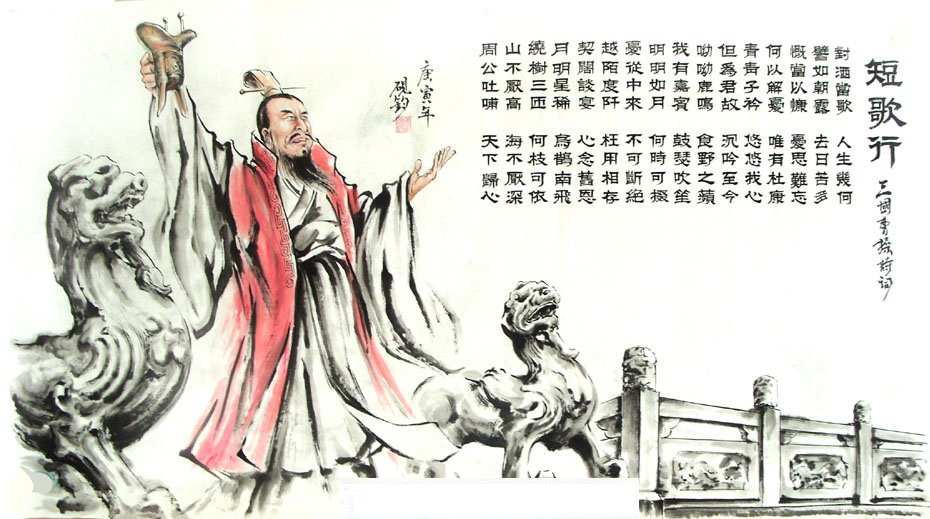 短歌行
三國曹操詩詞
對酒當歌 人生幾何
譬如朝露 去日苦多
慨當以慷 憂思難忘
何以解憂 唯有杜康
青青子衿 悠悠我心
但爲君故 沉吟至今
呦呦鹿鳴 食野之蘋
我有嘉賓 鼓瑟吹笙
明明如月 何時可掇
憂從中來 不可斷絕
越陌度阡 枉用相存
契闊談宴 心念舊恩
月明星稀 烏鵲南飛
繞樹三匝 何枝可依
山不厭高 海不厭深
周公吐哺 天下歸心
庚寅年
硯鈞